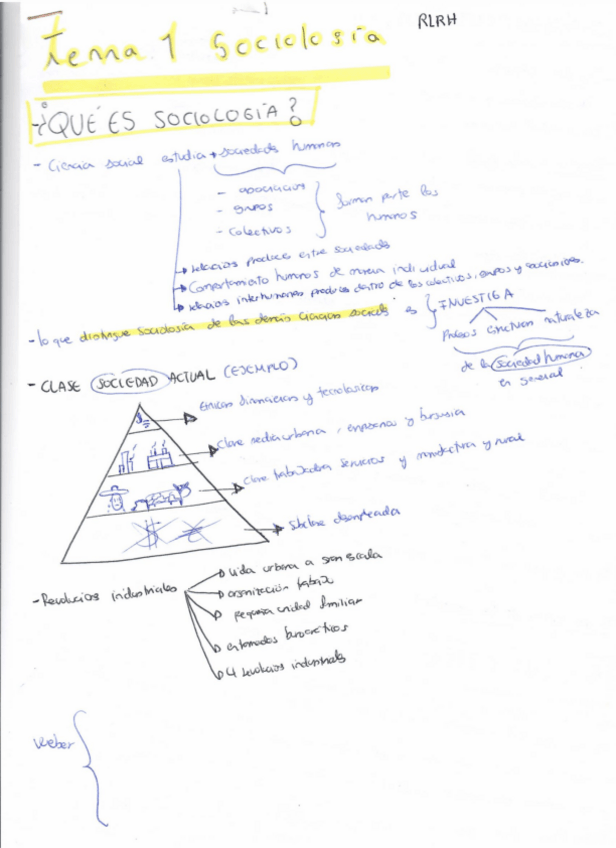 RLRH
Tema 1 Sociología
¿QUÉ ES SOCIOLOGÍA?
- Ciencia social estudia sociedades humanas
- asociacios
- grupos
- colectivos
forman parte los
humanos
relacios produces entre sociedades
Comportamiento humanos de manera individual
relacios interhumanas produces dentro de los colectivos, grupos y asociacios.
- lo que distingue sociología de las demás ciencias sociales es
INVESTIGA
naturaleza
de la sociedad humana
en general
- CLASE SOCIEDAD ACTUAL (EJEMPLO)
$=
financieros y tecnologicos
clase media urbana, empresarios y burguesia
clase trabajadora servicios y manufactura y rural
subclase desempleada
- Revolucios industriales
vida urbana a gran escala
organización trabajo
pequeña unidad familiar
entramados burocráticos
4 revolucios industriales
Weber